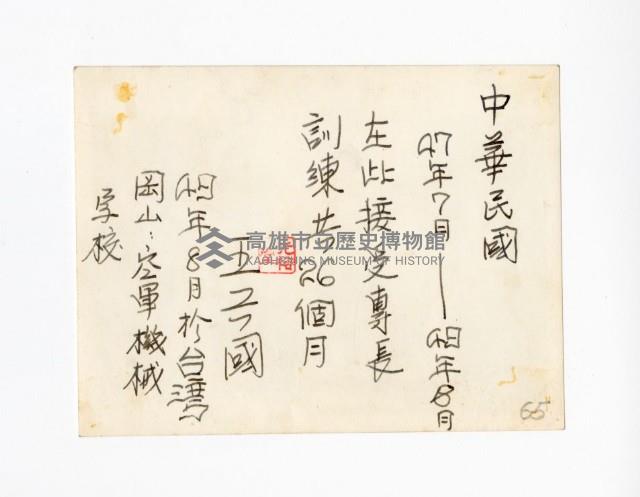 中華民國
47年7月——49年8月
在此接受專長
訓練共26個月
王子國
49年8月於台灣
岡山：空軍機械
学校
65
高雄市立歷史博物館
KAOHSIUNG MUSEUM OF HISTORY